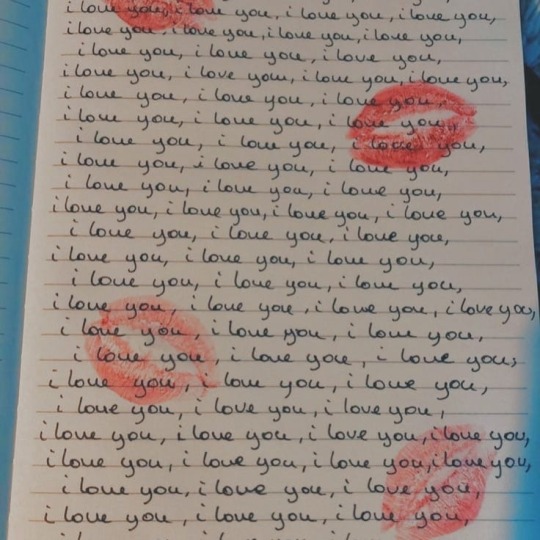 i love you, i love you, i love you, i love you,
i love you, i love you, i love you, i love you,
i love you, i love you, i love you,
i love you, i love you, i love you, i love you,
i love you, i love you, i love you,
i love you, i love you, i love you,
i love you, i love you, i love you,
i love you, i love you, i love you,
i love you, i love you, i love you,
i love you, i love you, i love you, i love you,
i love you, i love you, i love you,
i love you, i love you, i love you,
i love you, i love you, i love you,
i love you, i love you, i love you, i love you,
i love you, i love you, i love you,
i love you, i love you, i love you,
i love you, i love you, i love you,
i love you, i love you, i love you,
i love you, i love you, i love you, i love you,
i love you, i love you, i love you, i love you,
i love you, i love you, i love you,
i love you, i love you, i love you,